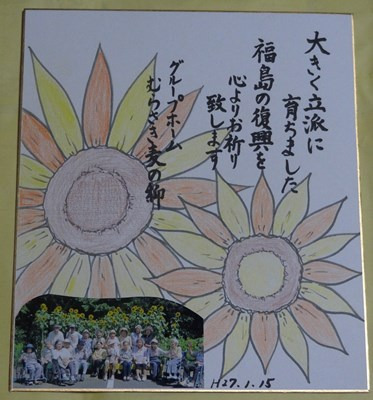 大きく立派に
育ちました
福島の復興を
心よりお祈り
致します
グループホーム
むらさき麦の郷
H27.1.15